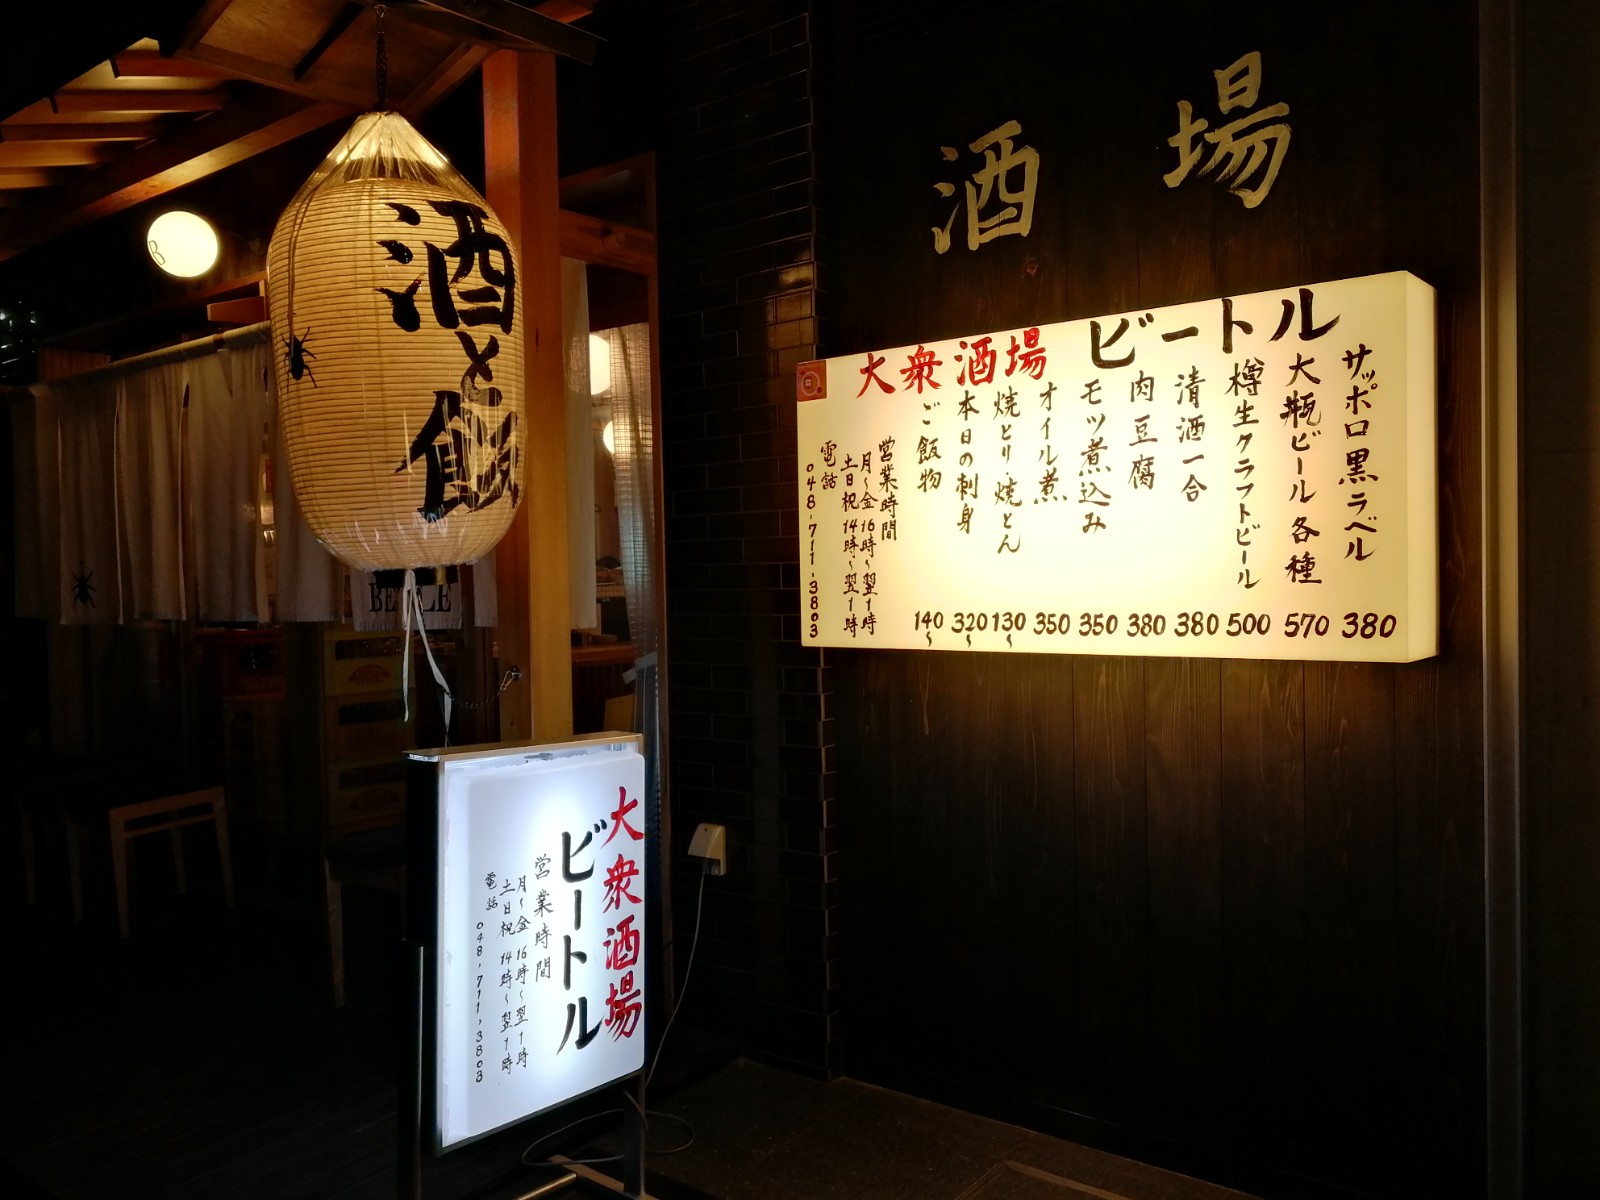 酒場
大衆酒場 ビートル
サッポロ黒ラベル 380
大瓶ビール各種 570
樽生クラフトビール 500
清酒一合 380
肉豆腐 380
モツ煮込み 350
オイル煮 350
焼とり・焼とん 130〜
本日の刺身 320〜
ご飯物 140〜
営業時間
月〜金 16時〜翌1時
土日祝 14時〜翌1時
電話 048-711-3803
酒と飯
BEETLE
大衆酒場
ビートル
営業時間
月〜金 16時〜翌1時
土日祝 14時〜翌1時
電話 048-711-3803
B